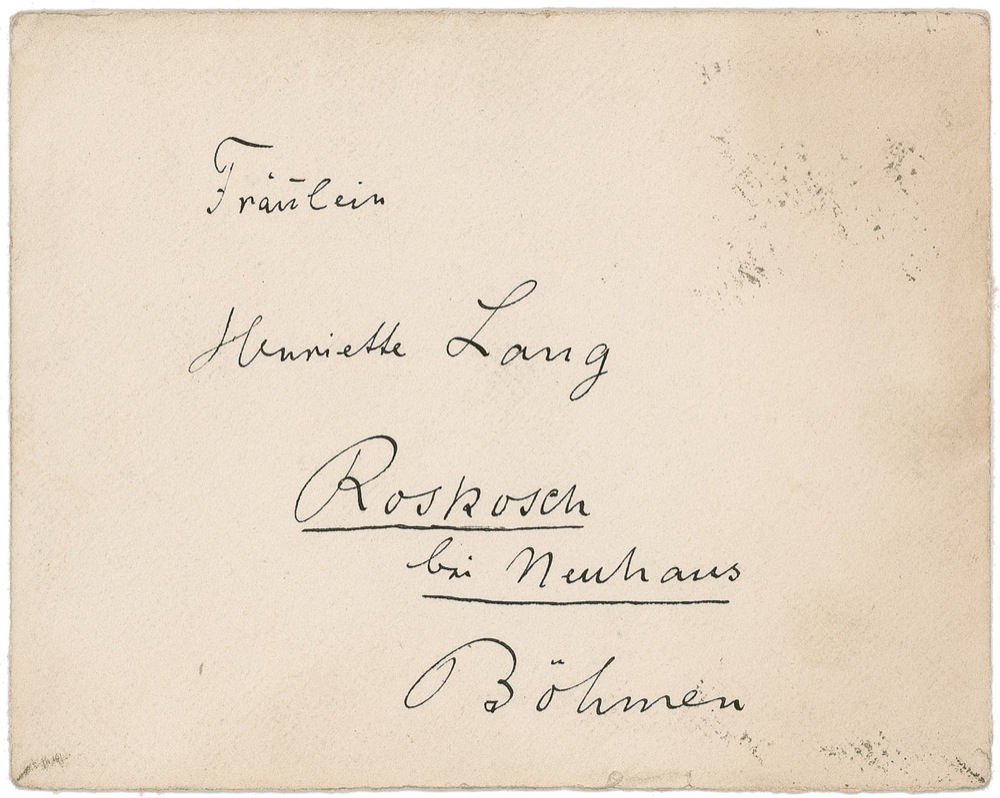 Fräulein
Henriette Lang
Roskosch
bei Neuhaus
Böhmen